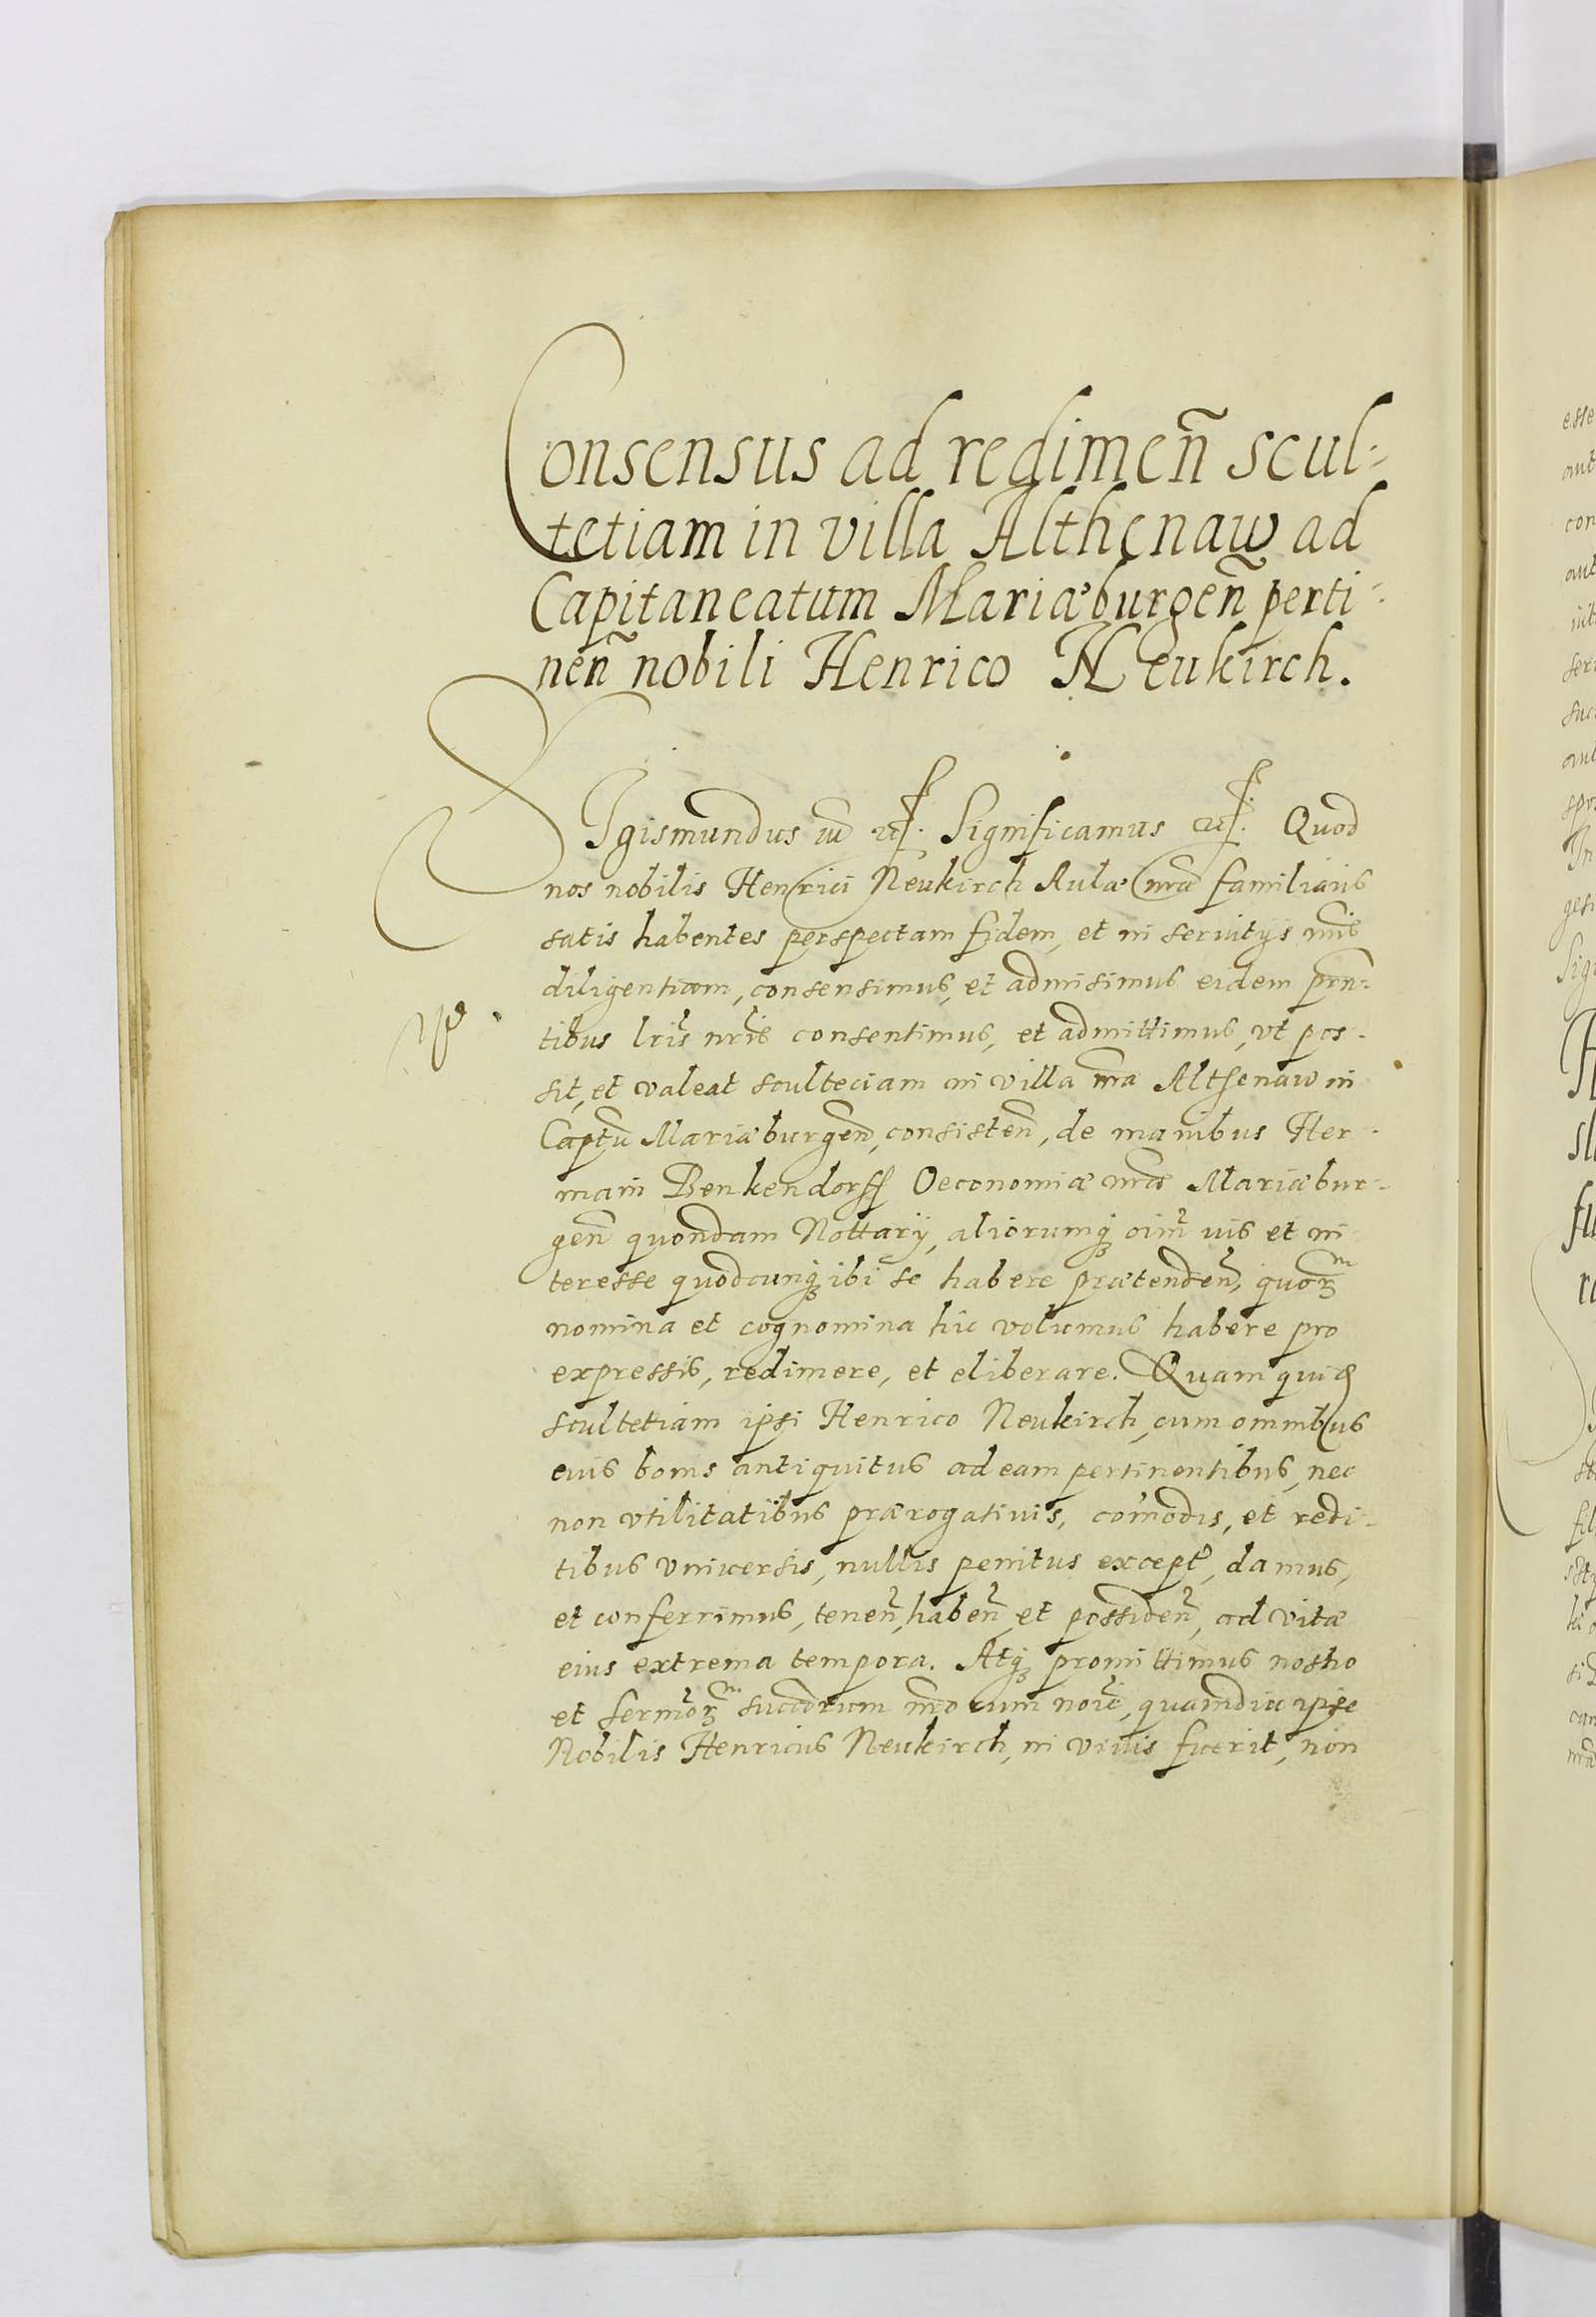 Consensus ad redimen̄ scul-
tetiam in villa Althenaw ad
Capitaneatum Mariæburgen̄ perti-
nen̄ nobili Henrico Neukirch.
SIgismundus iii etc. Significamus etc. Quod
nos nobilis Henrici Neukirch Aulæ nr̄æ familiaris
satis habentes perspectam fidem, et in seruitÿs nr̄is
diligentiam, consensimus, et admisimus eidem prn̄-
tibus lr̄is nr̄is consentimus, et admittimus, vt pos-
sit, et valeat sculteciam in villa nr̄a Althenaw in
Captu Mariæburgen̄, consisten̄, de manibus Her-
mani Benkendorff Oeconomiæ nr̄æ Mariæbur-
gen̄ quondam Nottarÿ, aliorumqꝫ oim̄ uis et in
teresse quodcunqꝫ ibi se habere prætenden̄, quoꝝm
nomina et cognomina hic volumus habere pro
expressis, redimere, et eliberare. Quam quid
scultetiam ipsi Henrico Neukirch, cum omnibus
euis bonis antiquitus ad eam pertinentibus, nec
non vtilitatibus prærogatiuis, com̄odis, et redi-
tibus vniuersis, nullis penitus except̄, damus,
et conferrimus, tenen̄, haben̄ et possiden̄, ad vitæ
eius extrema tempora. Atqꝫ promittimus nostro
et serm̄oꝝm succorum nr̄o cum noīe, quamdiu ipse
Nobilis Henricus Neukirch, in viuis fuerit, non